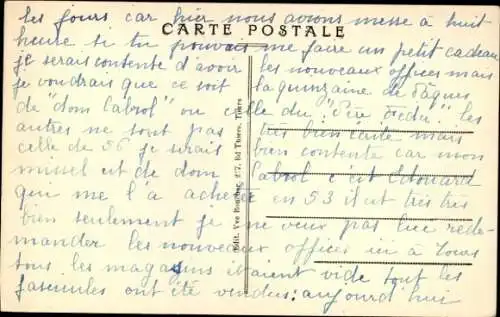 les jours car hier nous avions messe à huit
CARTE POSTALE
heure si tu pouvais me faire un petit cadeau
je serais contente d'avoir les nouveaux offices mais
je voudrais que ce soit la quinzaine de Pâques
de "dom Cabrol" ou celle du "Père Fédu". les
autres ne sont pas très bien écrite mais
celle de 56 je serais bien contente car mon
missel est de dom Cabrol c'est Edouard
qui me l'a acheté en 53 il est très très
bien seulement je ne veux pas lui rede-
mander les nouveaux offices ici à Tours
tous les magasins étaient vide tout les
fascicules ont été vendus: aujourd'hui
Edit. Vve Bourdier, 2, Bd Thiers, Tours